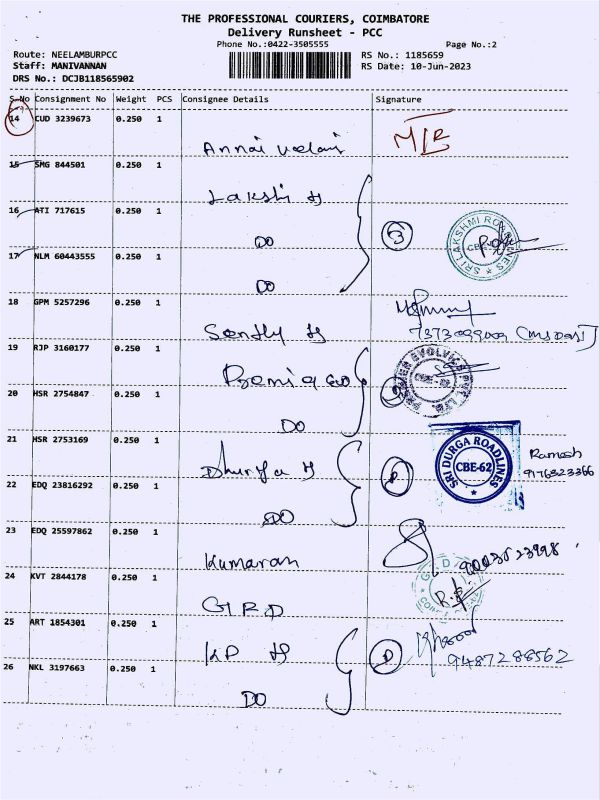 THE PROFESSIONAL COURIERS, COIMBATORE
Delivery Runsheet - PCC
Phone No.:0422-3505555
Page No.:2
Route: NEELAMBURPCC
RS No.: 1185659
Staff: MANIVANNAN
RS Date: 10-Jun-2023
DRS No.: DCJB118565902
S.No Consignment No Weight PCS Consignee Details Signature
14 CUD 3239673 0.250 1
Annai
15 SMG 844501 0.250 1
Lakshi
16 ATI 717615 0.250 1
DO
3
SRI LAKSHMI ROADLINES
17 NLM 60443555 0.250 1
DO
18 GPM 5257296 0.250 1
19 RJP 3160177 0.250 1
20 HSR 2754847 0.250 1
DO
21 HSR 2753169 0.250 1
SRI DURGA ROADLINES
CBE-62
Ramesh
22 EDQ 23816292 0.250 1
DO
23 EDQ 25597862 0.250 1
Kumaran
24 KVT 2844178 0.250 1
GRD
25 ART 1854301 0.250 1
KP
9487288562
26 NKL 3197663 0.250 1
DO